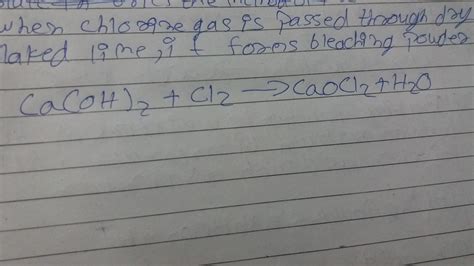 when chlorine gas is passed through dry
laked lime, it forms bleaching powder
Ca(OH)2 + Cl2 → CaOCl2 + H2O